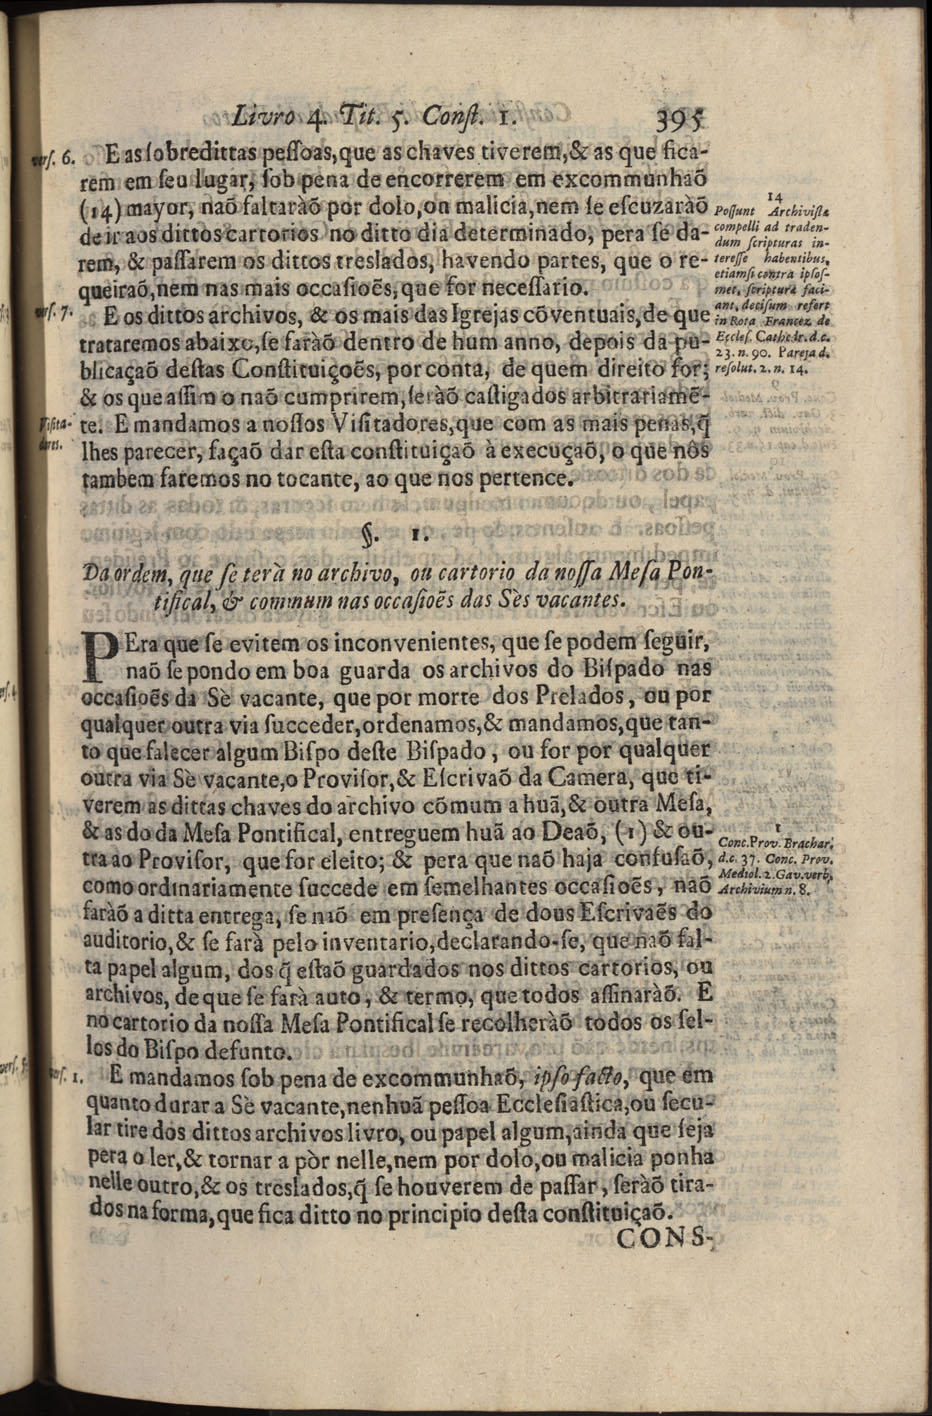 Livro 4. Tit. 5. Conſt. 1. 395
verſ. 6. E as ſobredittas peſſoas, que as chaves tiverem, & as que fica-
rem em ſeu lugar, ſob pena de encorrerem em excommunhaõ
(14) mayor, naõ faltaràõ por dolo, ou malicia, nem ſe eſcuzaràõ
de ir aos dittos cartorios no ditto dia determinado, pera ſe da-
rem, & paſſarem os dittos treslados, havendo partes, que o re-
queiraõ, nem nas mais occaſioẽs, que for neceſſario.
verſ. 7. E os dittos archivos, & os mais das Igrejas cõventuais, de que
trataremos abaixo, ſe faràõ dentro de hum anno, depois da pu-
blicaçaõ deſtas Conſtituiçoẽs, por conta, de quem direito for;
& os que aſſim o naõ cumprirem, ſeràõ caſtigados arbitrariamẽ-
Viſita-
dores.
te. E mandamos a noſſos Viſitadores, que com as mais penas, q̃
lhes parecer, façaõ dar eſta conſtituiçaõ à execuçaõ, o que nòs
tambem faremos no tocante, ao que nos pertence.
14
Poſſunt Archiviſtæ
compelli ad traden-
dum ſcripturas in-
tereſſe habentibus,
etiamſi contra ipſoſ-
met, ſcripturæ faci-
ant, deciſum refert
in Rota Francez. de
Eccleſ. Cathedr. d.c.
23. n. 90. Pareja d.
reſolut. 2. n. 14.
§. 1.
Da ordem, que ſe terà no archivo, ou cartorio da noſſa Meſa Pon-
tifical, & commum nas occaſioẽs das Sès vacantes.
PEra que ſe evitem os inconvenientes, que ſe podem ſeguir,
naõ ſe pondo em boa guarda os archivos do Biſpado nas
occaſioẽs da Sè vacante, que por morte dos Prelados, ou por
qualquer outra via ſucceder, ordenamos, & mandamos, que tan-
to que falecer algum Biſpo deſte Biſpado, ou for por qualquer
outra via Sè vacante, o Proviſor, & Eſcrivaõ da Camera, que ti-
verem as dittas chaves do archivo cõmum a huã, & outra Meſa,
& as do da Meſa Pontifical, entreguem huã ao Deaõ, (1) & ou-
tra ao Proviſor, que for eleito; & pera que naõ haja confuſaõ,
como ordinariamente ſuccede em ſemelhantes occaſioẽs, naõ
faràõ a ditta entrega, ſe naõ em preſença de dous Eſcrivaẽs do
auditorio, & ſe farà pelo inventario, declarando-ſe, que naõ fal-
ta papel algum, dos q̃ eſtaõ guardados nos dittos cartorios, ou
archivos, de que ſe farà auto, & termo, que todos aſſinaràõ. E
no cartorio da noſſa Meſa Pontifical ſe recolheràõ todos os ſel-
los do Biſpo defunto.
1
Conc. Prov. Brachar.
d.c. 37. Conc. Prov.
Mediol. 2. Gav. verb.
Archivium n. 8.
verſ. 1. E mandamos ſob pena de excommunhaõ, ipſo facto, que em
quanto durar a Sè vacante, nenhuã peſſoa Eccleſiaſtica, ou ſecu-
lar tire dos dittos archivos livro, ou papel algum, ainda que ſeja
pera o ler, & tornar a pòr nelle, nem por dolo, ou malicia ponha
nelle outro, & os treslados, q̃ ſe houverem de paſſar, ſeràõ tira-
dos na forma, que fica ditto no principio deſta conſtituiçaõ.
CONS-